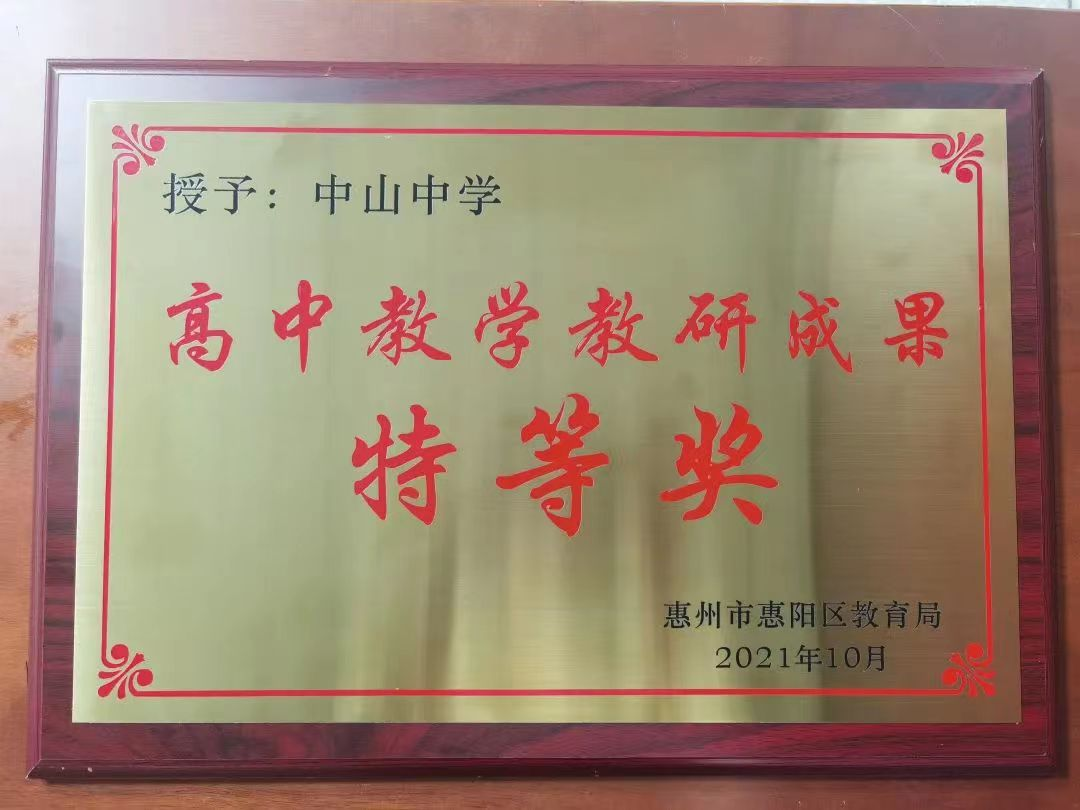 授予：中山中学
高中教学教研成果
特等奖
惠州市惠阳区教育局
2021年10月